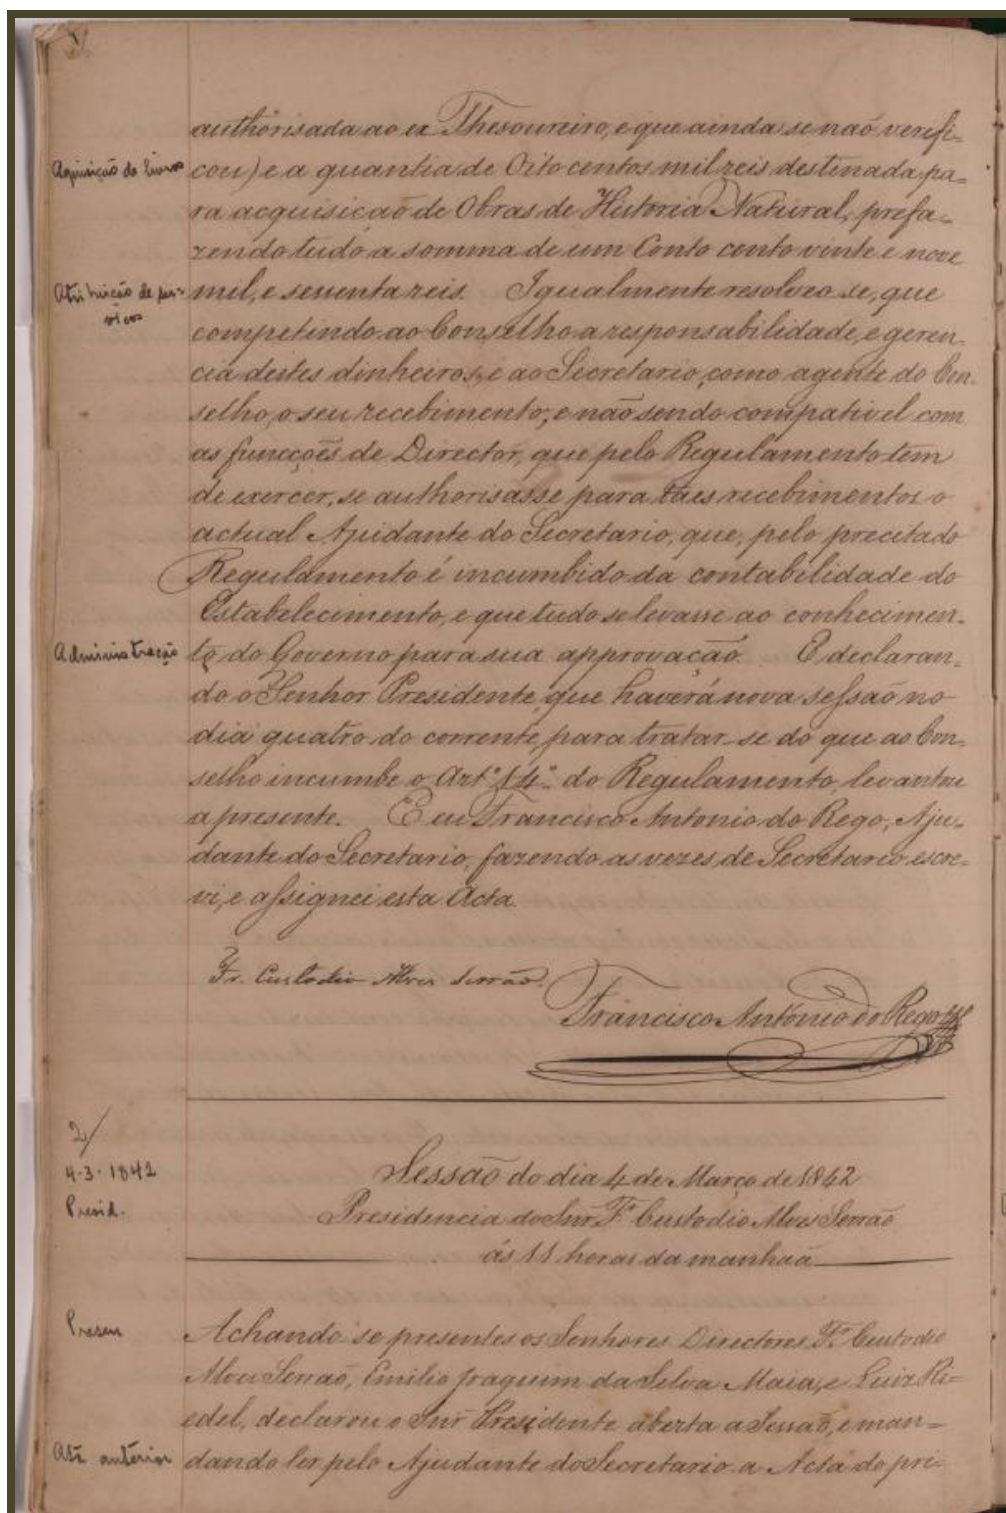 authorisada ao ex Thesoureiro, e que ainda se naõ verifi-
Aquisição de Livros
cou) e a quantia de Oito centos mil reis destinada pa-
ra acquisiçaõ de Obras de Historia Natural, prefa-
zendo tudo a somma de um Conto cento vinte e nove
Atribuição de ser-
viços
mil, e sessenta reis. Igualmente resolveo se, que
competindo ao Conselho a responsabilidade, e geren-
cia destes dinheiros, e ao Secretario, como agente do Con-
selho, o seu recebimento, e não sendo compativel com
as funcções de Director, que pelo Regulamento tem
de exercer, se authorisasse para táes recebimentos o
actual Ajudante do Secretario, que, pelo precitado
Regulamento é incumbido da contabilidade do
Estabelecimento, e que tudo se levasse ao conhecimen-
Administração
to do Governo para sua approvação. E declaran-
do o Senhor Presidente, que haverá nova sessaõ no
dia quatro do corrente, para tratar-se do que ao Con-
selho incumbe o Artº 14º do Regulamento, levantou
a presente. E eu Francisco Antonio do Rego, Aju-
dante do Secretario, fazendo as vezes de Secretario escre-
vi, e assignei esta Acta.
Fr. Custodio Alves Serrão.
Francisco Antonio do Rego
2/
4-3-1842
Presid.
Sessaõ do dia 4 de Março de 1842
Presidencia do Snr. Fr. Custodio Alves Serraõ
ás 11 horas da manhaã
Presen
Achando se presentes os Senhores Directores Fr. Custodio
Alves Serraõ, Emilio Joaquim da Silva Maia, e Luiz Ri-
edel, declarou o Snr Presidente aberta a Sessaõ, e man-
Ata anterior
dando ler pelo Ajudante do Secretario a Acta do pri-